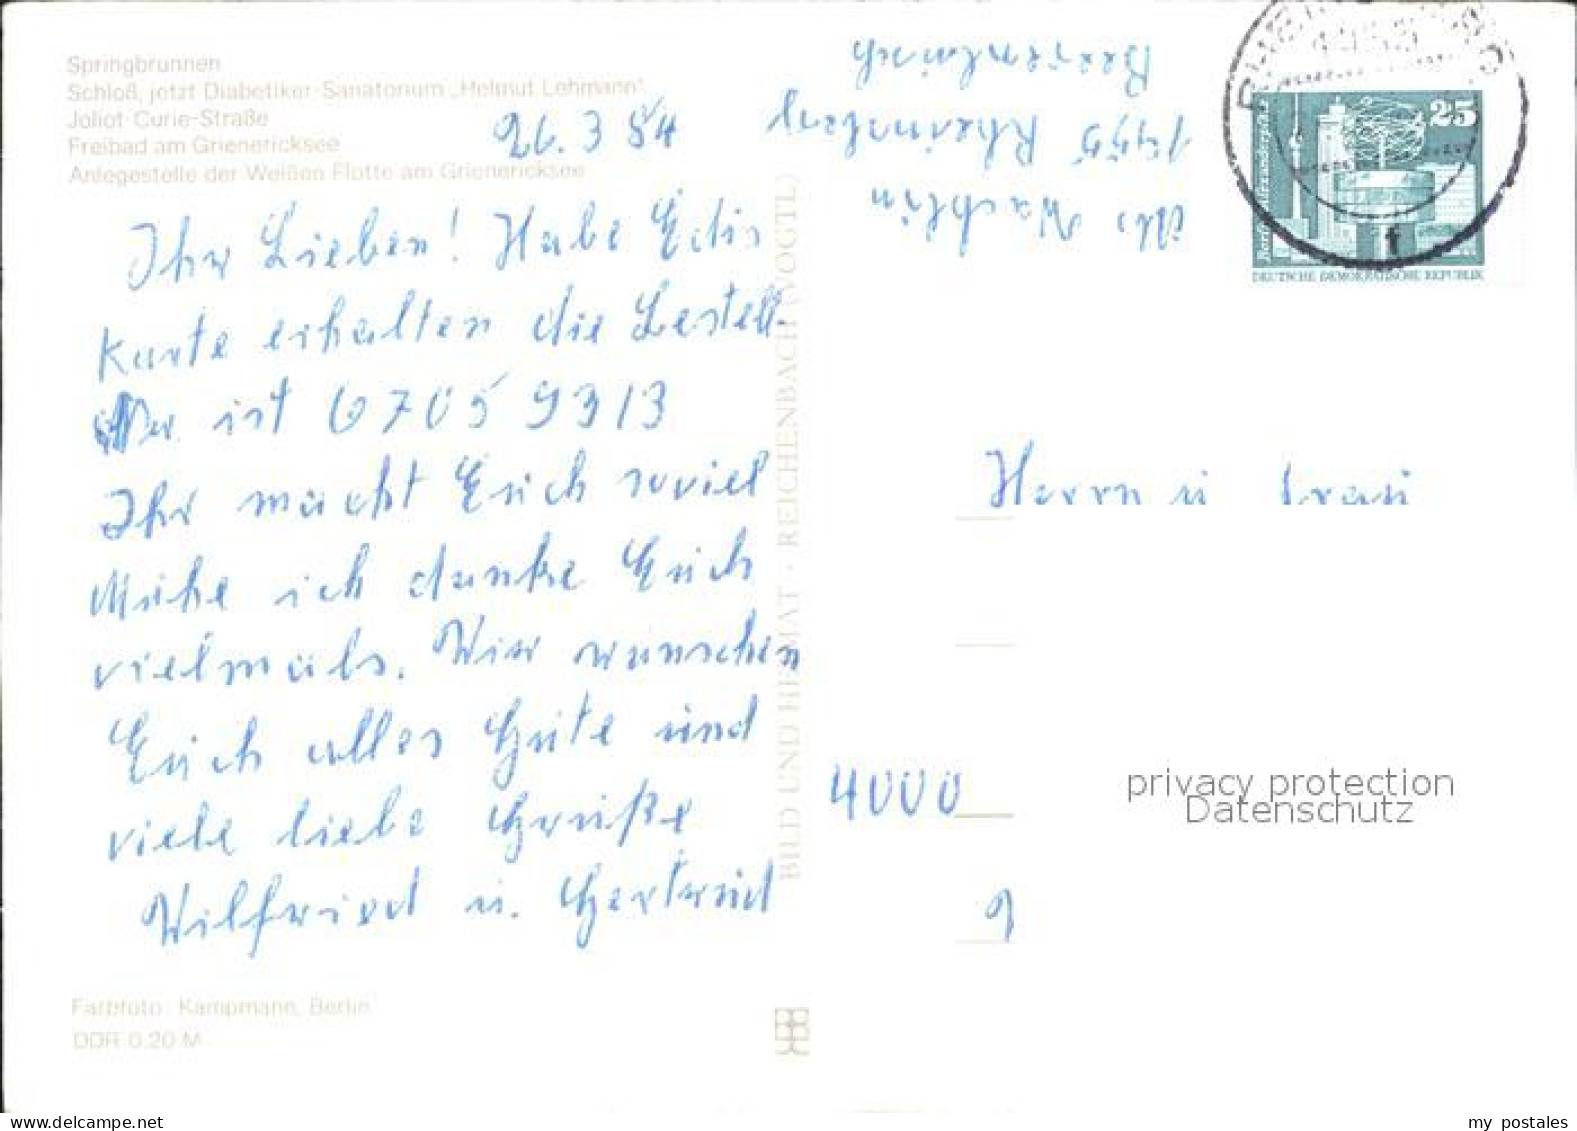 Springbrunnen
Schloß, jetzt Diabetiker-Sanatorium „Helmut Lehmann"
Joliot-Curie-Straße
Freibad am Grienericksee
Anlegestelle der Weißen Flotte am Grienericksee
26. 3 84
Ihr Lieben! Habe Edis
Karte erhalten die Bestell-
Nr. ist 67059313
Ihr macht Euch soviel
Mühe ich danke Euch
vielmals. Wir wünschen
Euch alles Gute und
viele liebe Grüße
Wilfried u. Gertrud
Farbfoto: Kampmann, Berlin
DDR 0,20 M
BILD UND HEIMAT · REICHENBACH (VOGTL)
Abs Wachlin
1955 Rheinsberg
25
DEUTSCHE DEMOKRATISCHE REPUBLIK
f
Herrn u Frau
4000
privacy protection
Datenschutz
9
www.delcampe.net
my_postales